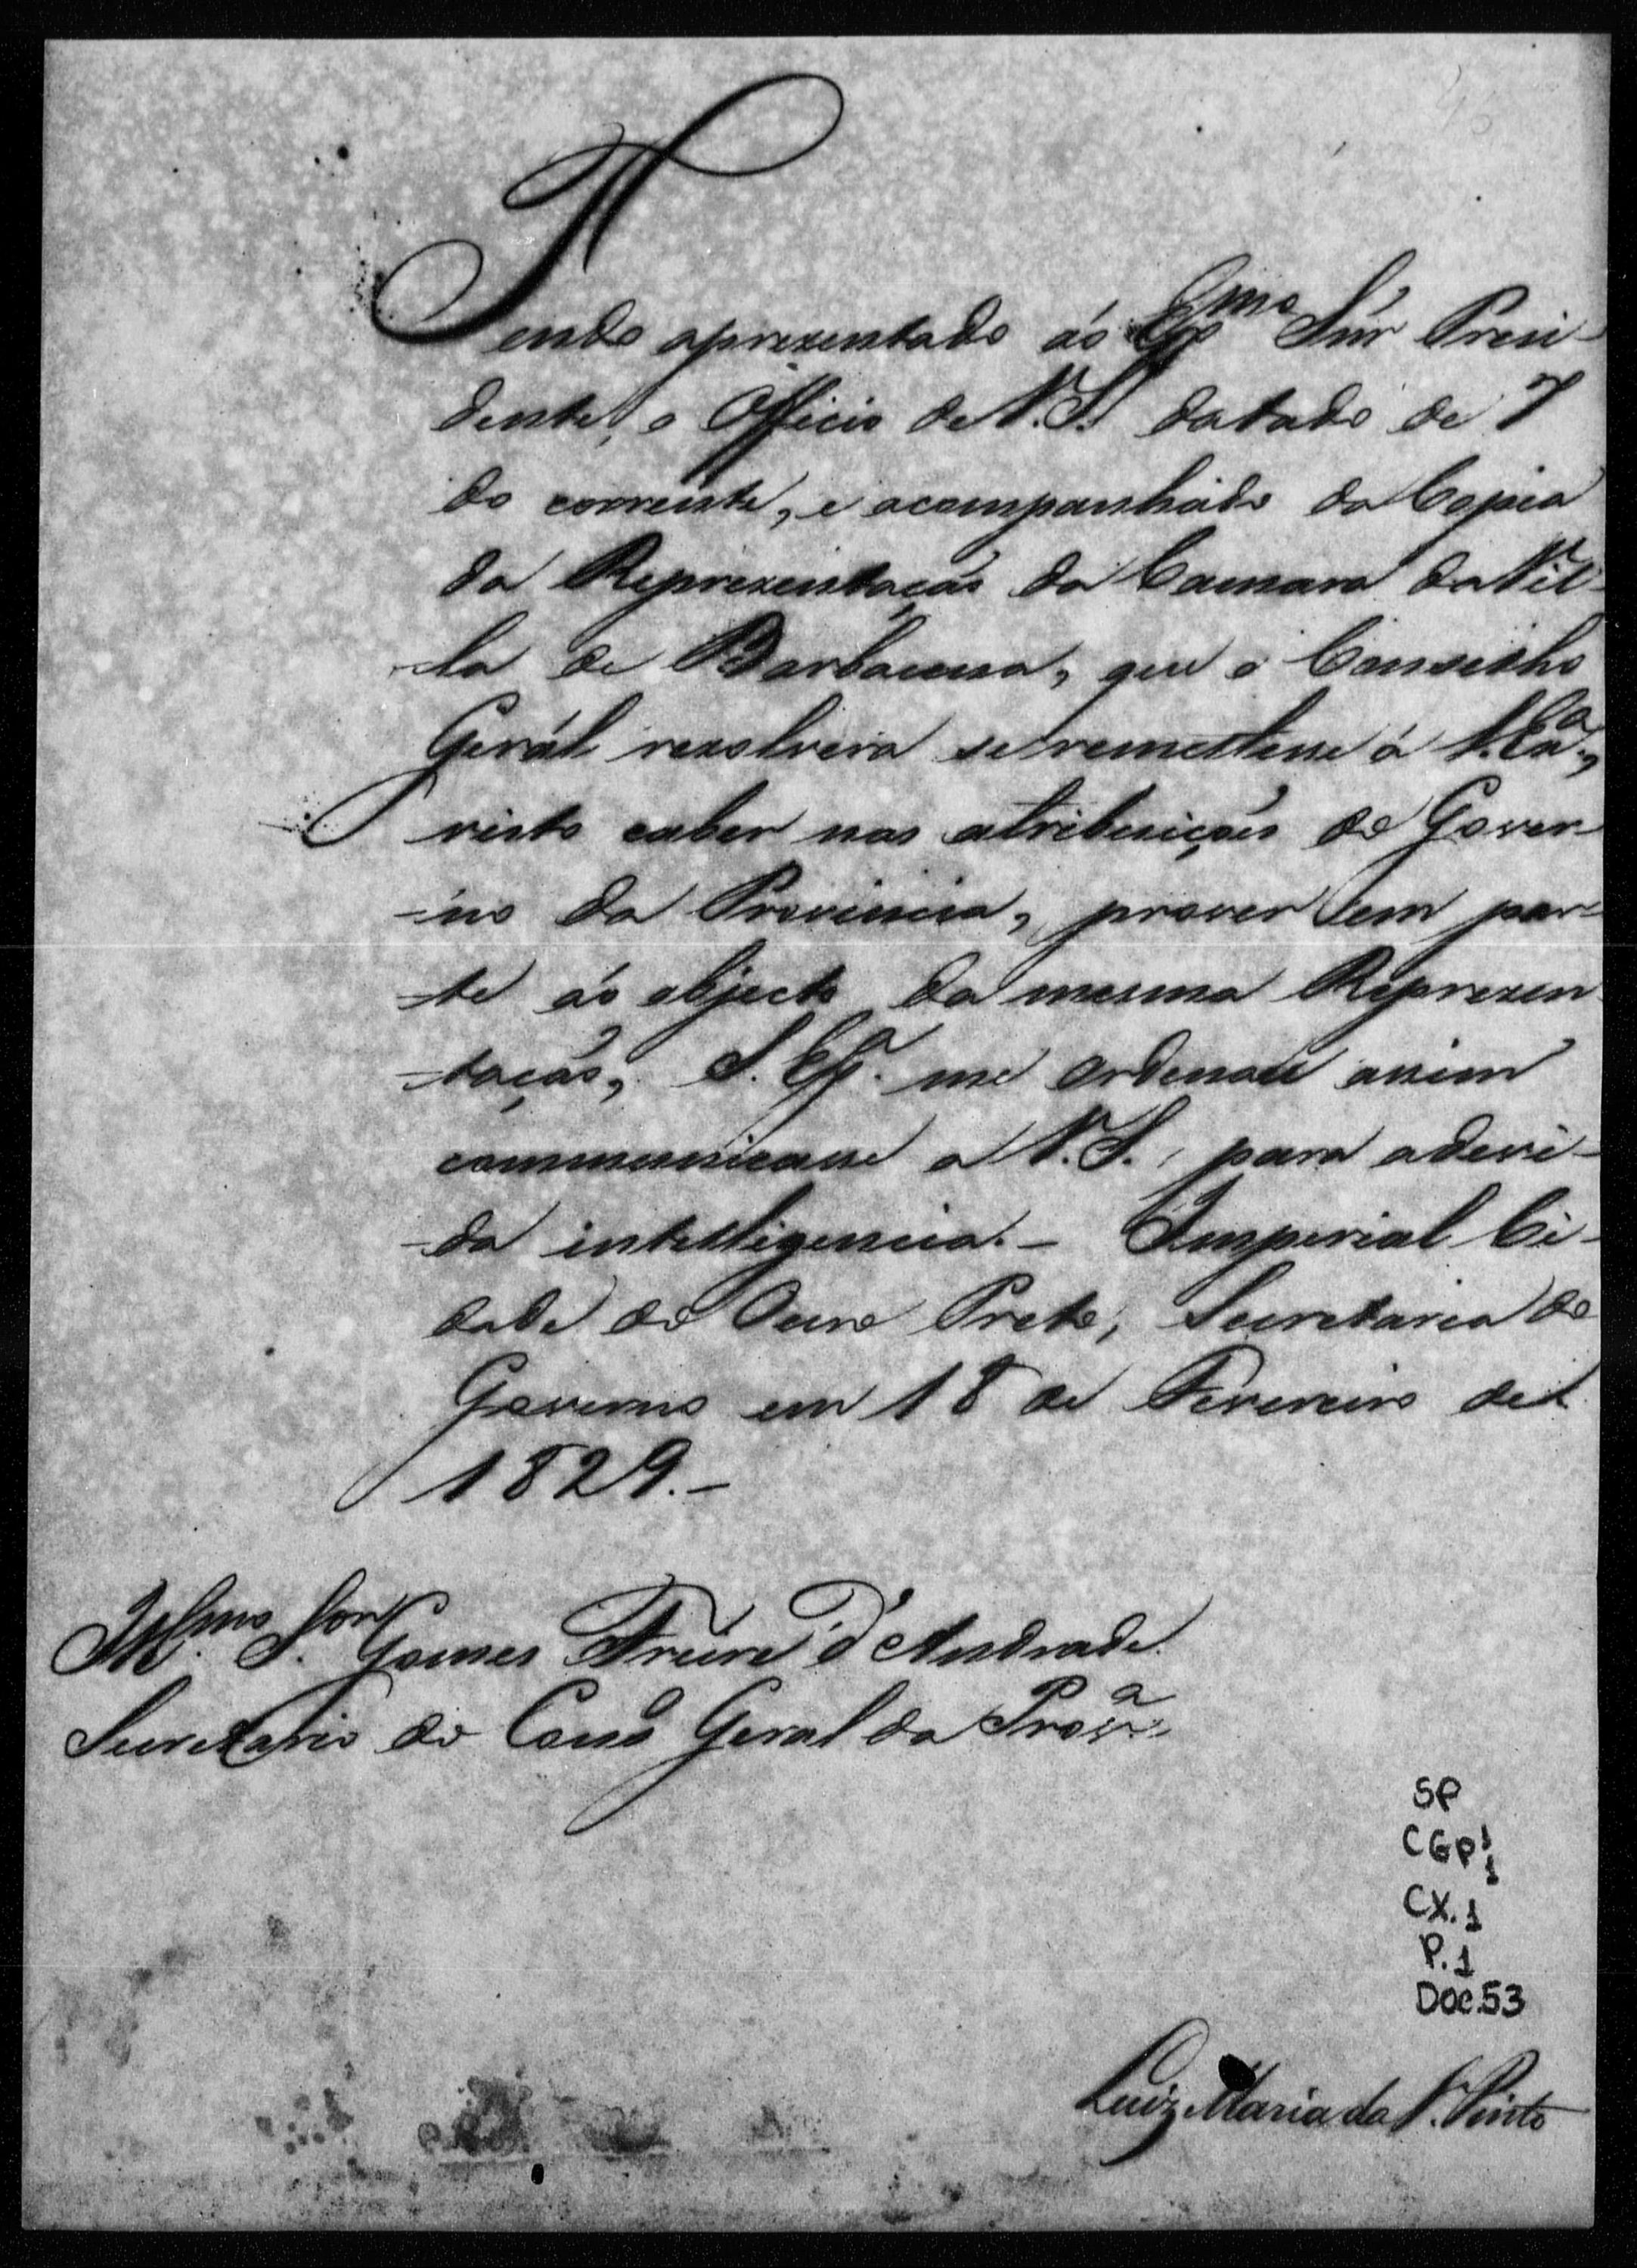 Tendo aprezentado áo Exmo Snr Presi-
dente, o Officio de V.S. datado de 7
do corrente, e acompanhado da Copia
da Reprezentação da Camara da Vil-
-la de Barbacena, que o Conselho
Gerál rezolvera se remettesse á S. Exa.,
visto caber nas atribuições do Gover-
-no da Provincia, prover em par-
-te áo objecto da mesma Reprezen-
-tação, S. Exa. me ordenou assim
communicasse a V.S., para a devi-
-da intelligencia. - Imperial Ci-
dade do Ouro Preto, Secretaria do
Governo em 18 de Fevereiro de
1829. -
Illmo. Snr. Gomes Freire d'Andrade
Secretario do Conso Geral da Prova
SP
CGP 1
1
CX. 1
P. 1
Doc.53
Luiz Maria da S. Pinto